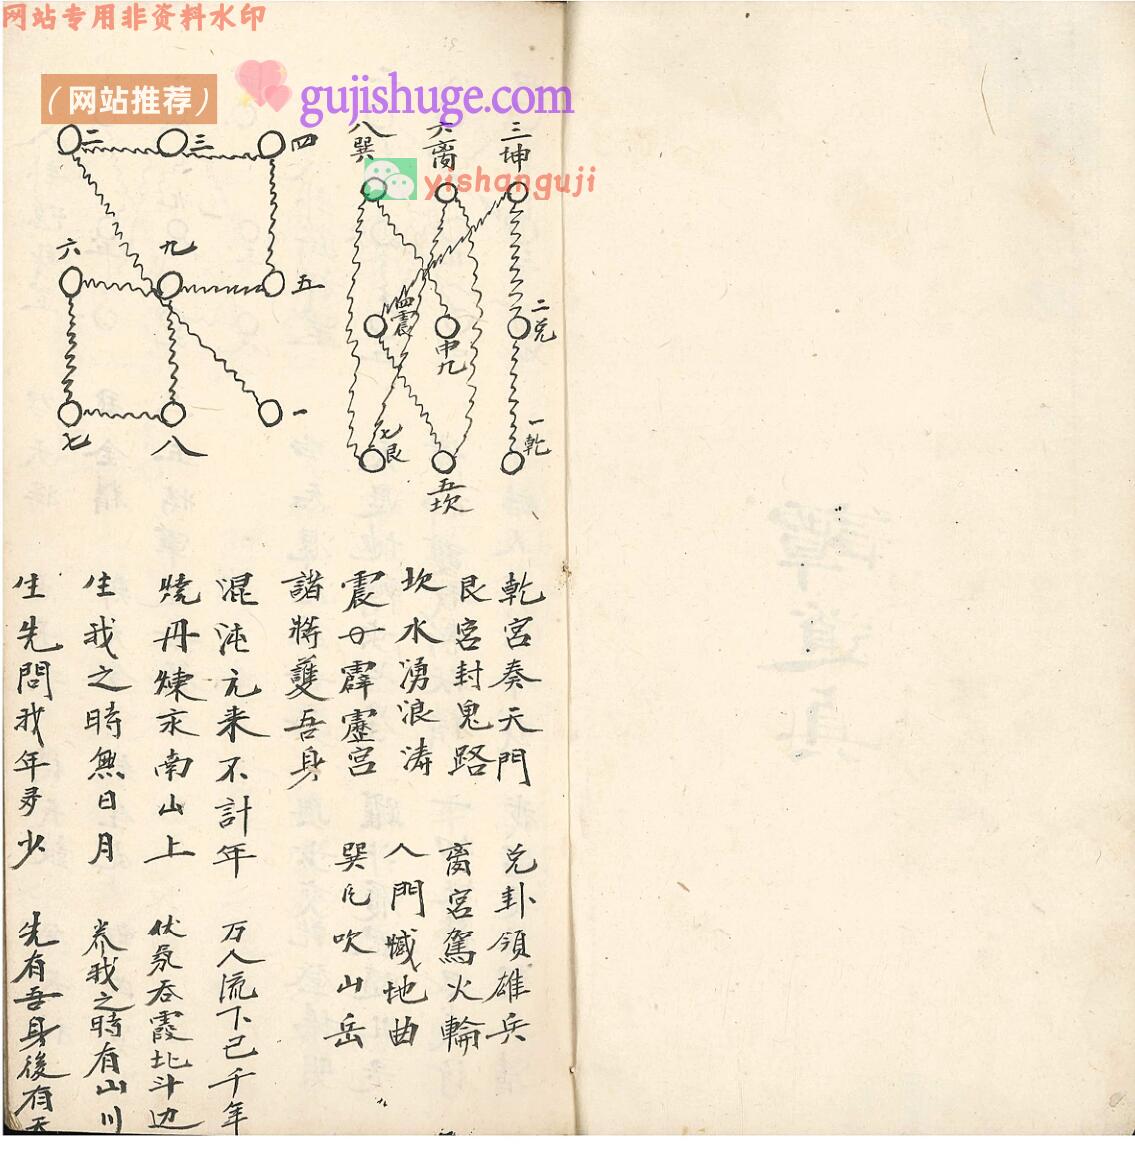 网站专用非资料水印
（网站推荐）
gujishuge.com
yishanguji
三坤
六离
八巽
二兑
一乾
四震
中九
七艮
五坎
四
三
二
五
九
六
一
八
七
乾宫奏天門 兑卦領雄兵
艮宫封鬼路 离宫駕火輪
坎水湧浪涛 八門 地曲
震 霹 宫 巽 吹山岳
諸將護吾身
混沌元来不計年 万人流下已千年
燒丹煉汞南山上 伏氛吞霞北斗边
生我之時無日月 养我之時有山川
生先問我年多少 先有吾身後有天